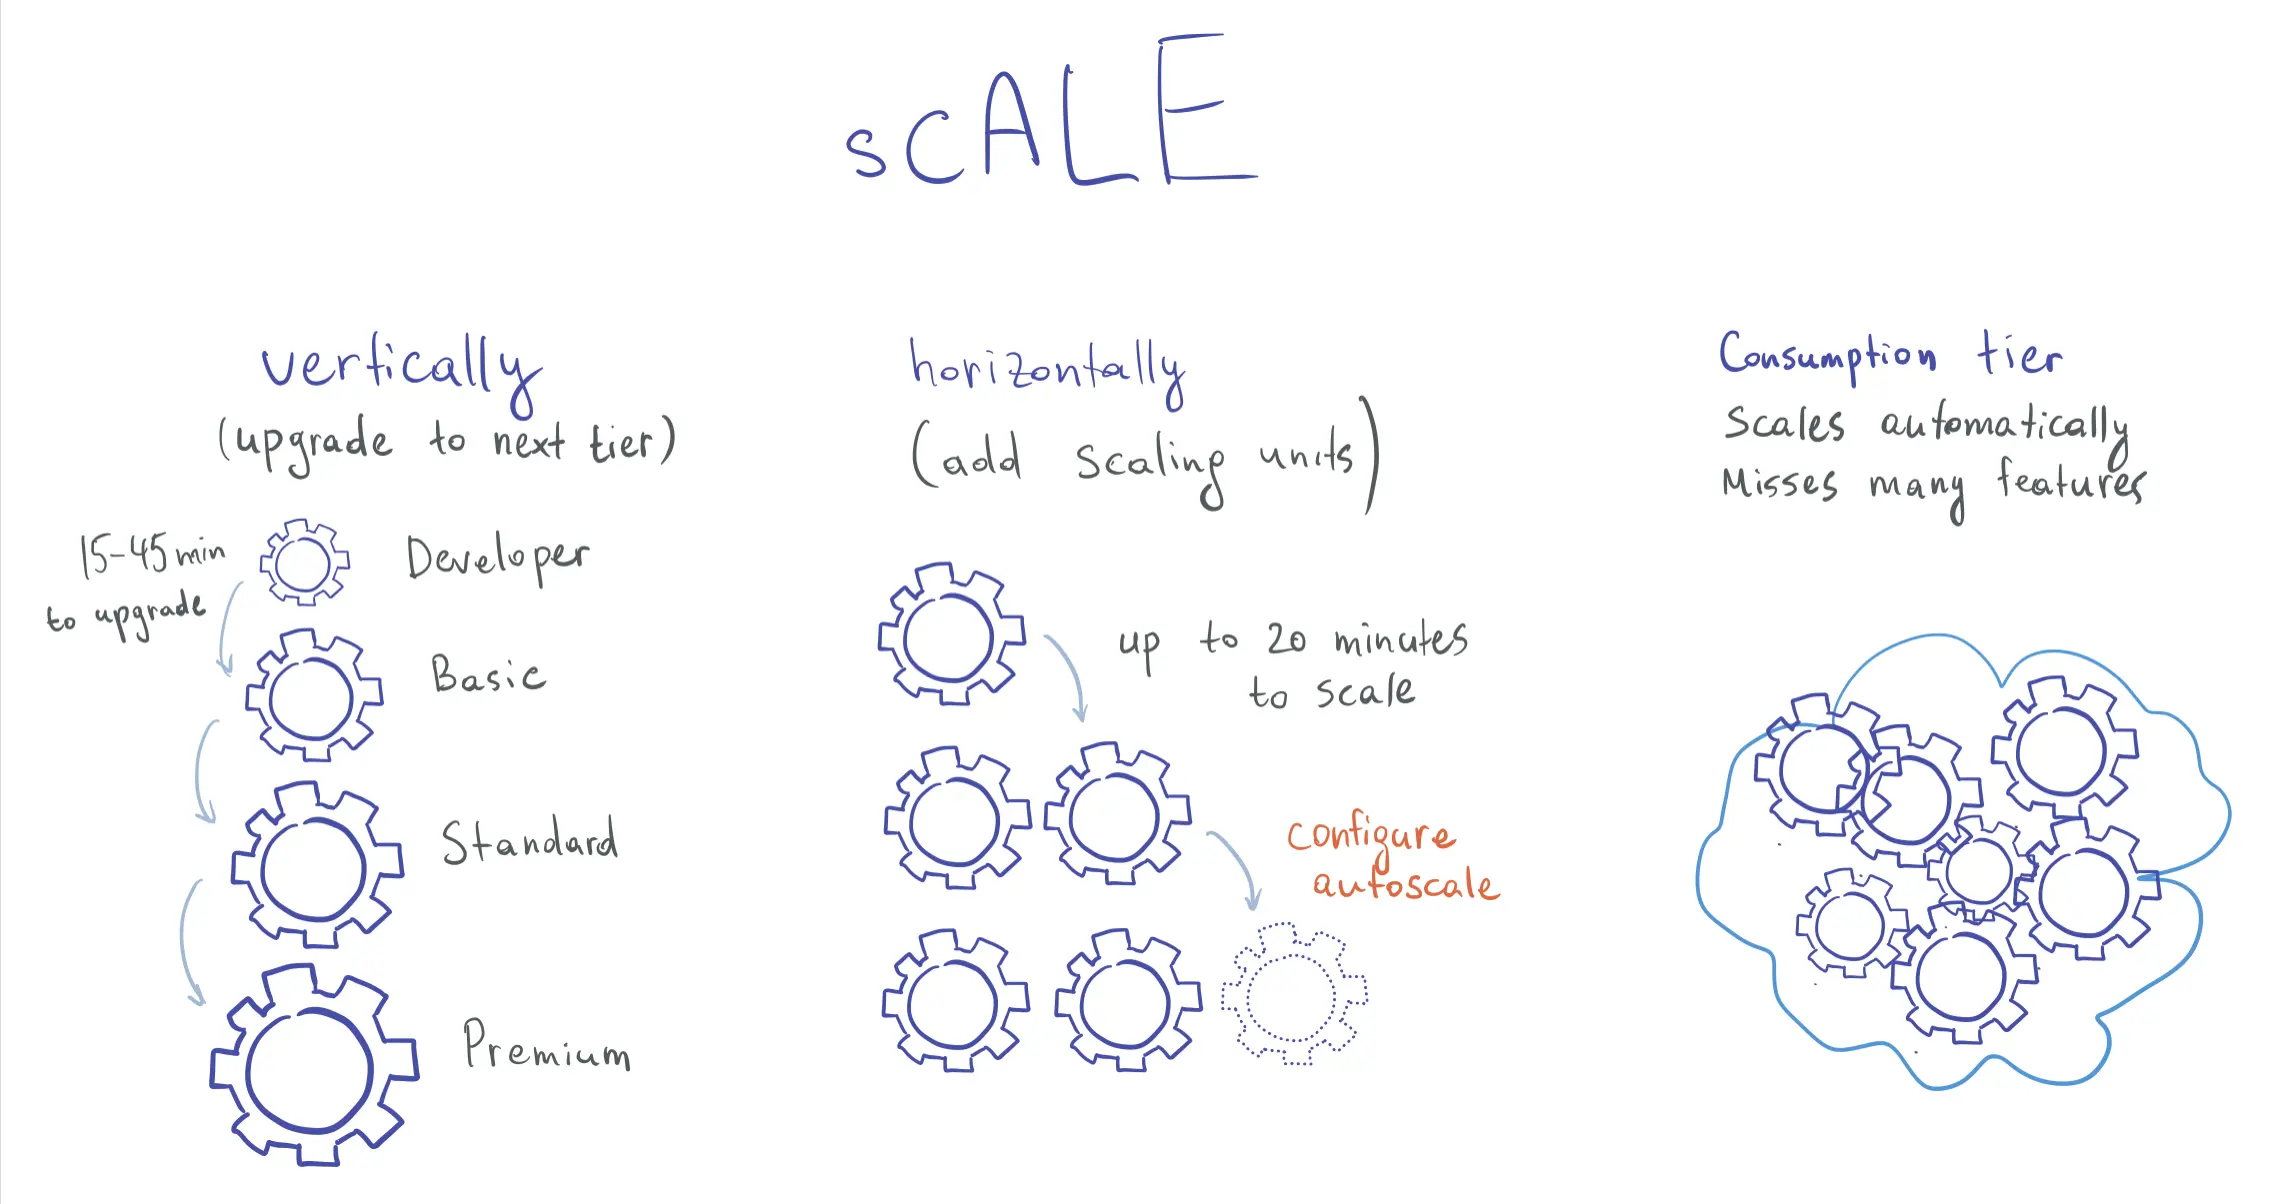 sCALE
vertically
(upgrade to next tier)
15-45 min
to upgrade
Developer
Basic
Standard
Premium
horizontally
(add scaling units)
up to 20 minutes
to scale
configure
autoscale
Consumption tier
Scales automatically
Misses many features